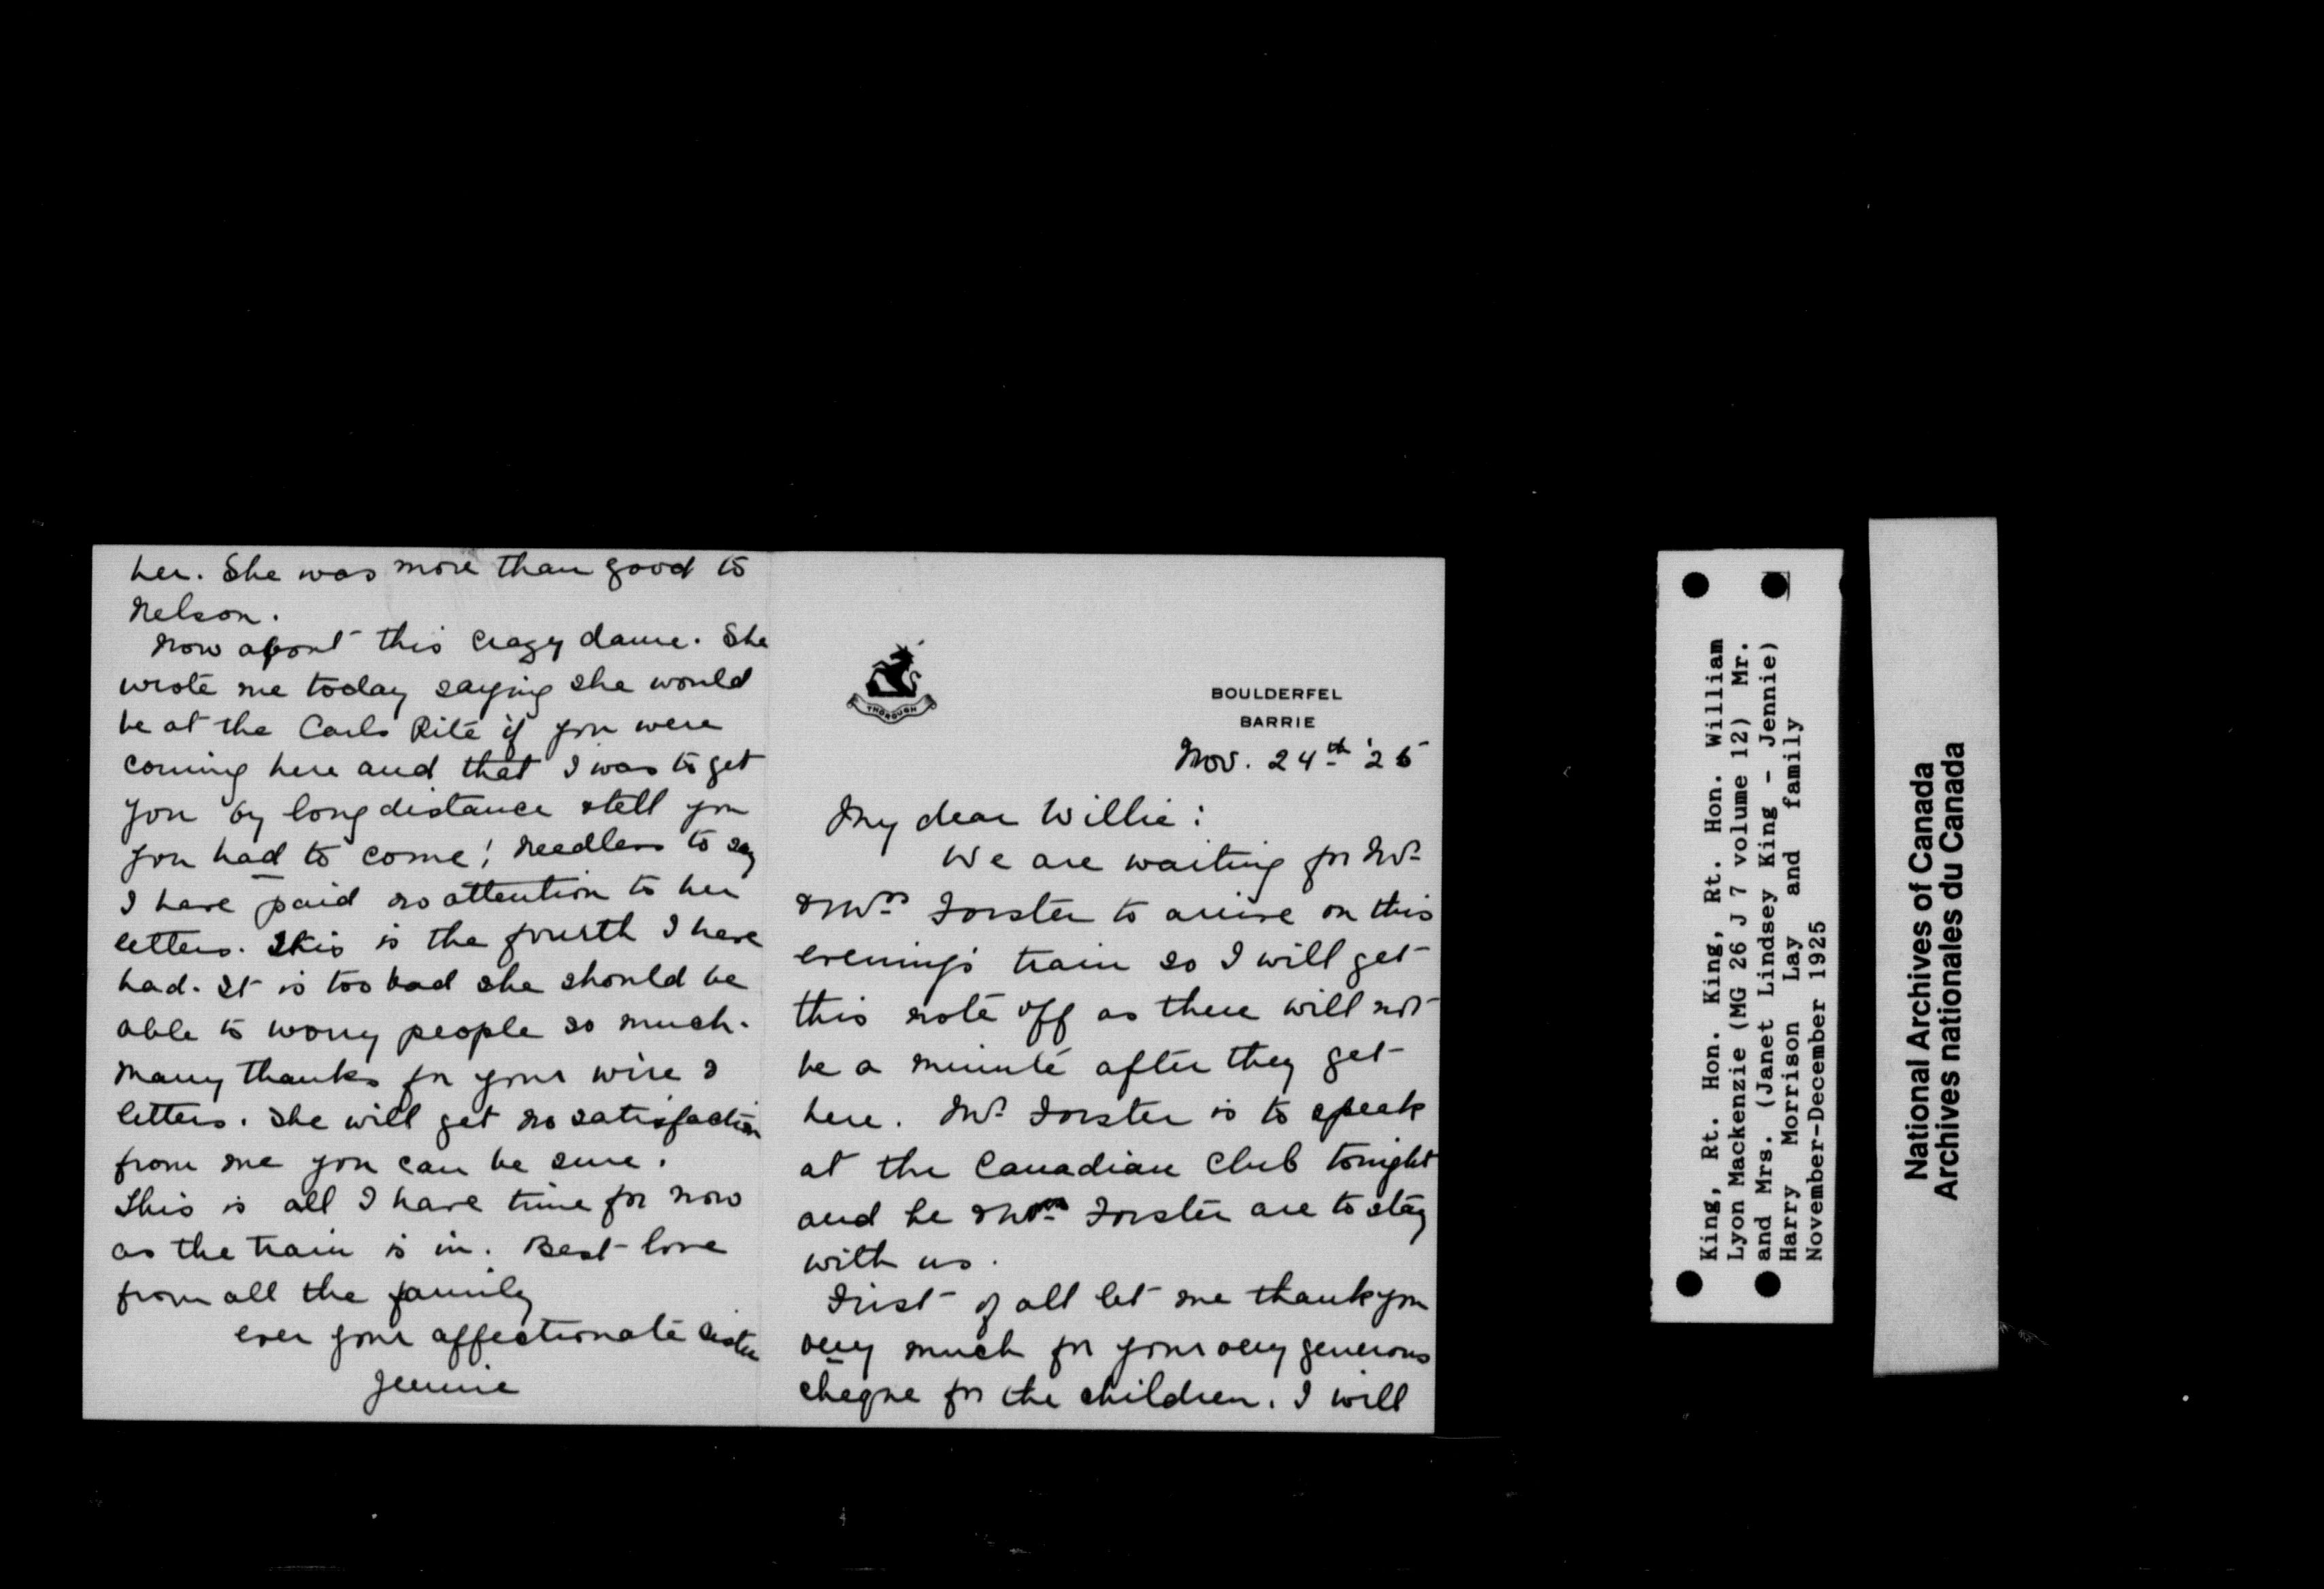 her. She was more than good to
Nelson.
Now about this crazy dame. She
wrote me today saying she would
be at the Carls Rite if you were
coming here and that I was to get
you by long distance & tell you
you had to come! Needless to say
I have paid no attention to her
letters. This is the fourth I have
had. It is too bad she should be
able to worry people so much.
Many thanks for your wire &
letters. She will get no satisfaction
from me you can be sure.
This is all I have time for now
as the train is in. Best love
from all the family
ever your affectionate sister
Jennie
THOROUGH
BOULDERFEL
BARRIE
Nov. 24th '25
My dear Willie:
We are waiting for Mr.
& Mrs. Forster to arrive on this
evening's train so I will get
this note off as there will not
be a minute after they get
here. Mr. Forster is to speak
at the Canadian Club tonight
and he & Mrs. Forster are to stay
with us.
First of all let me thank you
very much for your very generous
cheque for the children. I will
King, Rt. Hon. King, Rt. Hon. William
Lyon Mackenzie (MG 26 J 7 volume 12) Mr.
and Mrs. (Janet Lindsey King - Jennie)
Harry Morrison Lay and family
November-December 1925
National Archives of Canada
Archives nationales du Canada